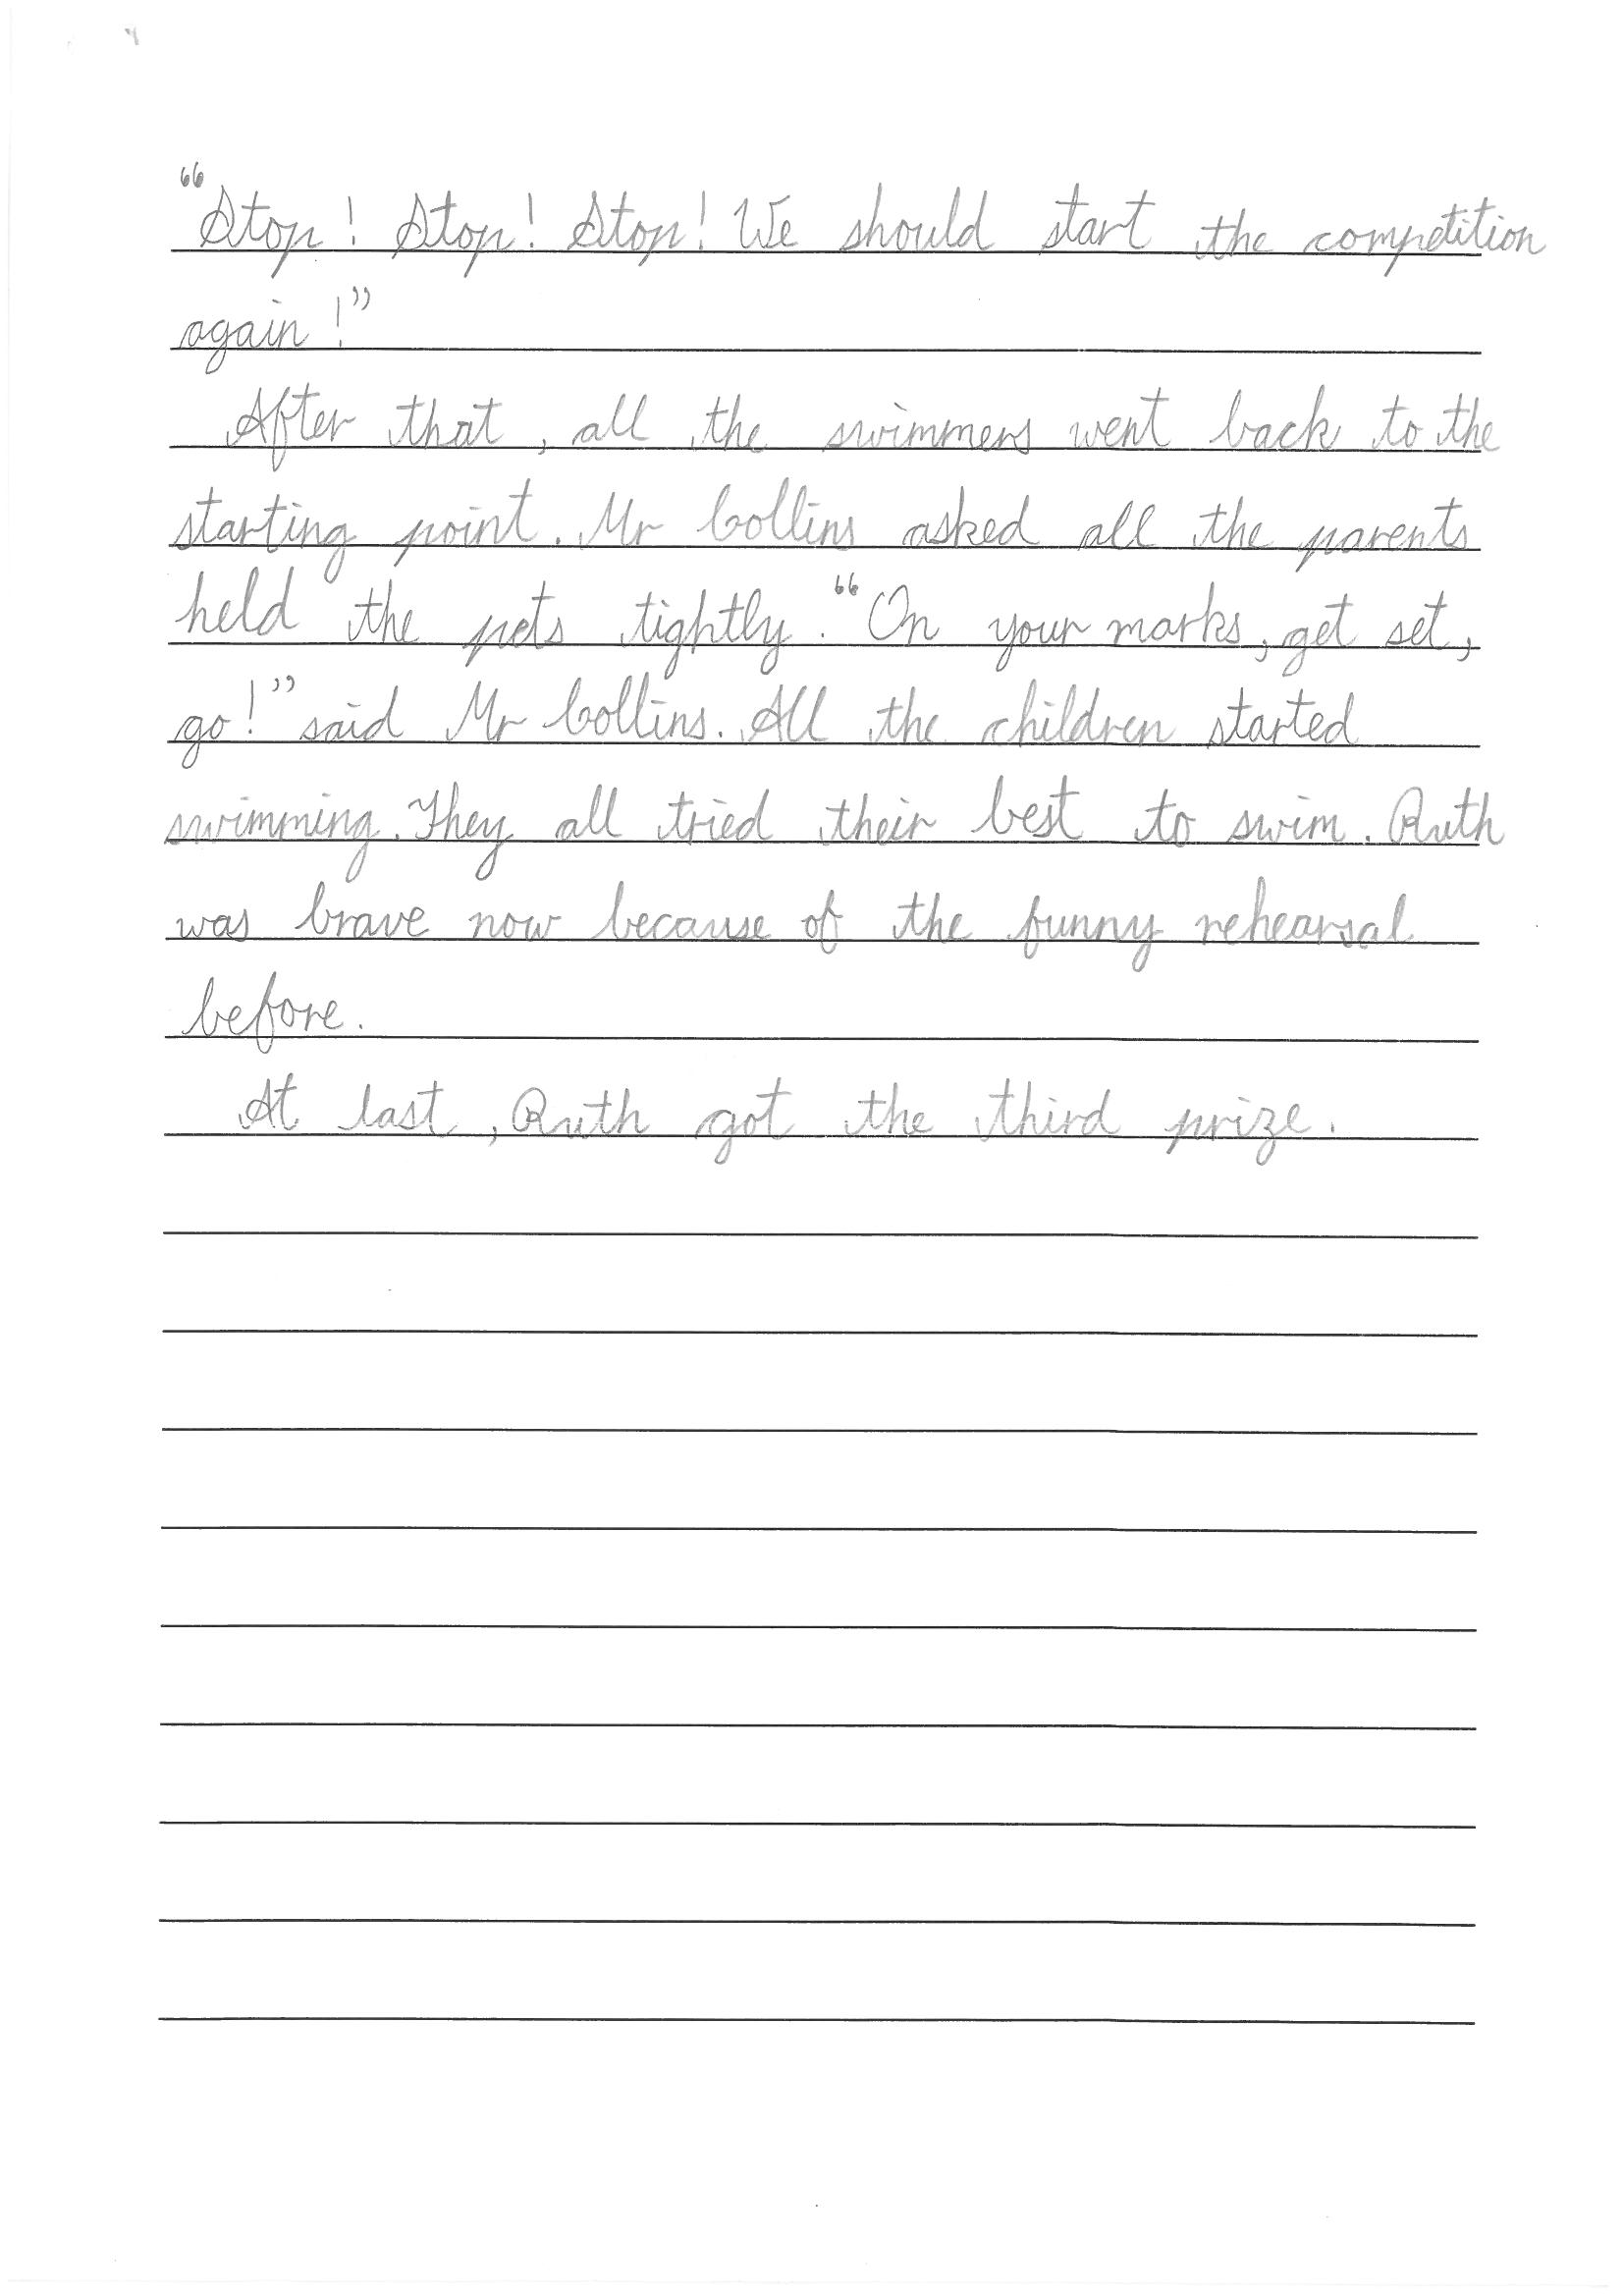 “Stop! Stop! Stop! We should start the competition
again!”
After that, all the swimmers went back to the
starting point. Mr Collins asked all the parents
held the pets tightly. “On your marks, get set,
go!” said Mr Collins. All the children started
swimming. They all tried their best to swim. Ruth
was brave now because of the funny rehearsal
before.
At last, Ruth got the third prize.